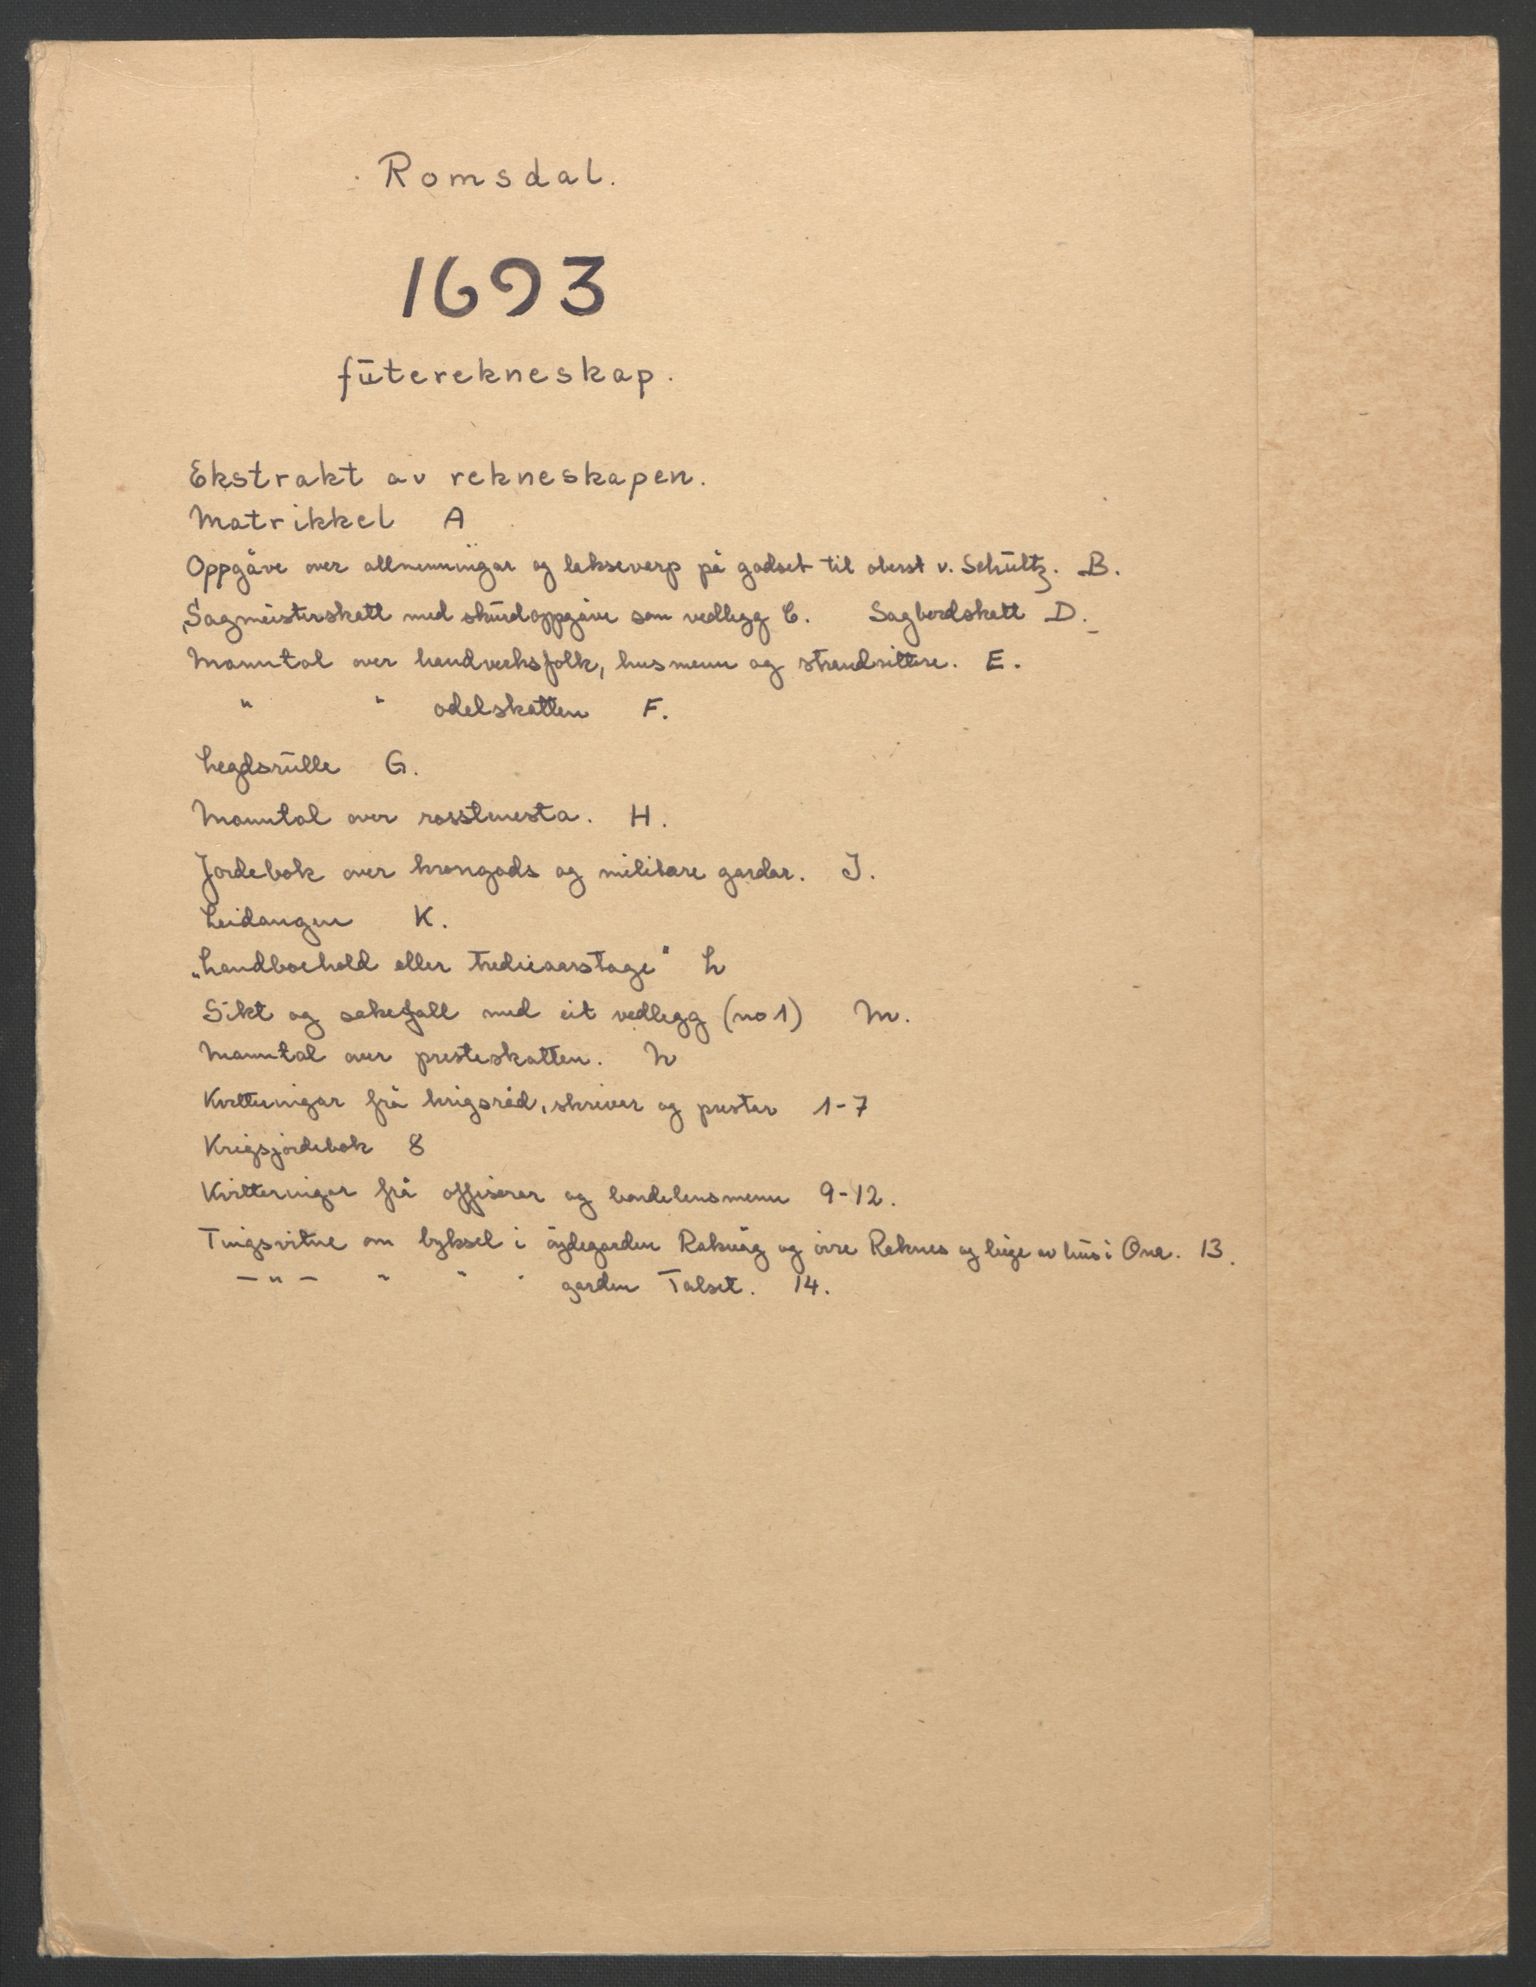 Romsdal.
1693
fūterekneskap.
Ekstrakt av rekneskapen.
Matrikkel A
Oppgåve over allmenningar og laksevarp på godset til oberst v. Schūltz. B.
Sagmeisterskatt med skūrdoppgåve som vedlegg C. Sagbordskatt D.
Manntal over handverksfolk, husmenn og strandsittere. E.
" " odelskatten F.
Legdsrūlle G.
Manntal over rosstenesta. H.
Jordebok over krongods og militære gardar. J.
Leidangen K.
„Landboehold eller tredieaarstage" L
Sikt og sakefall med eit vedlegg (no 1) M.
Manntal over presteskatten. N
Kvitteringar frå krigsråd, skrivar og prestar 1-7
Krigsjordebok 8
Kvitteringar frå offiserar og bondelensmenn 9-12.
Tingsvitne om byksel i øydegarden Rakvåg og övre Reknes og leige av hūs i Ona. 13.
— " — " " " garden Talset. 14.